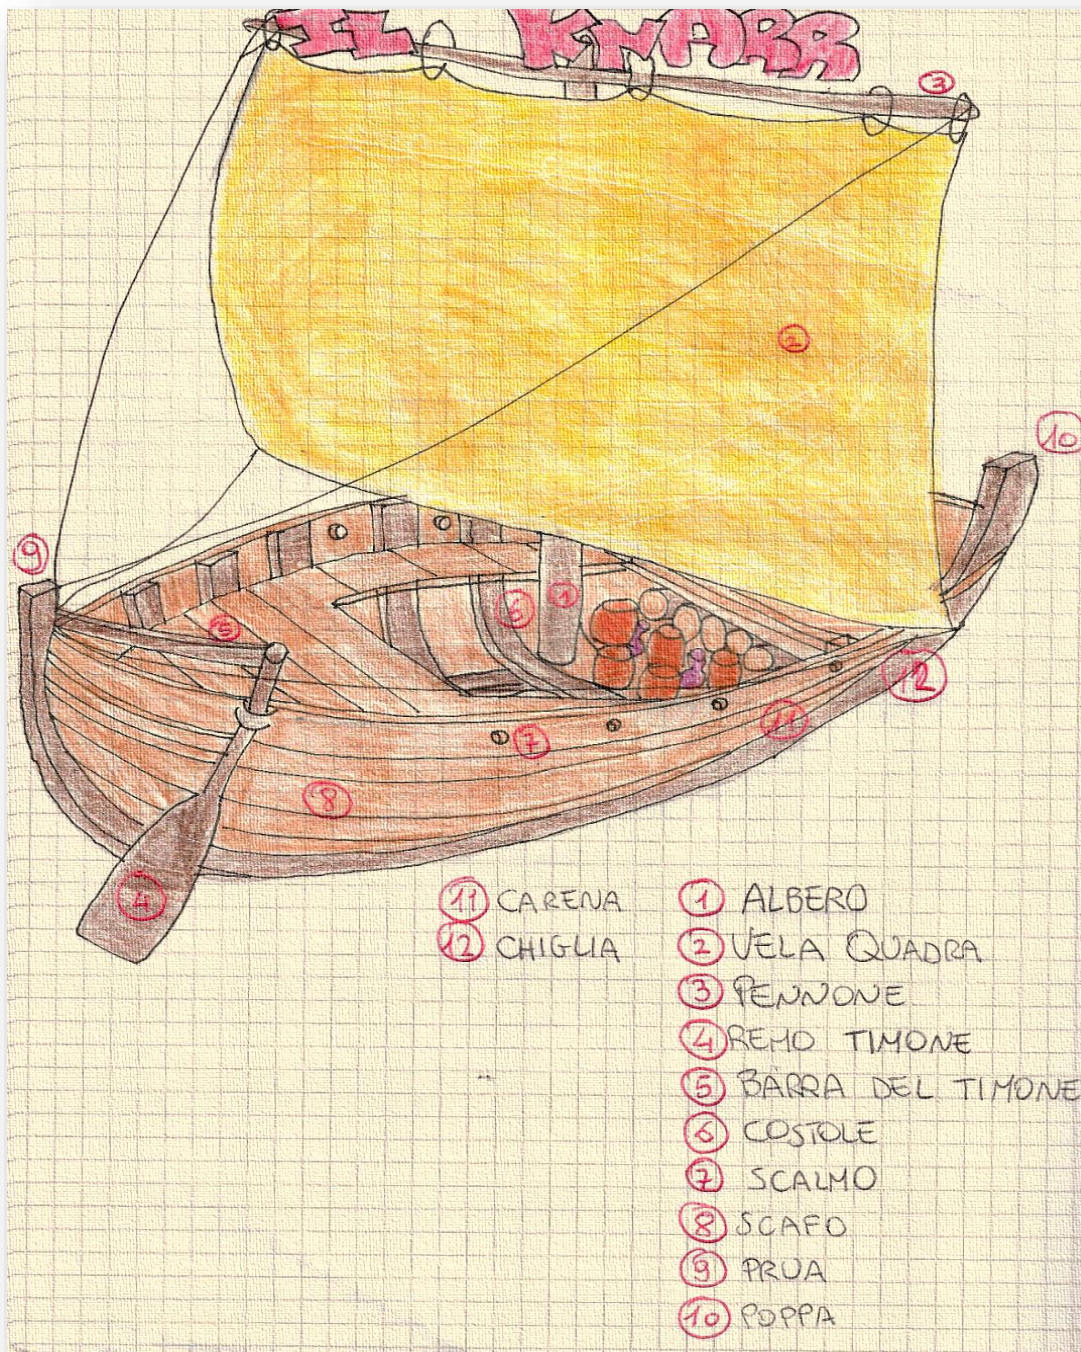 IL KNARR
3
2
10
9
6
1
5
12
11
7
8
4
11 CARENA
12 CHIGLIA
1 ALBERO
2 VELA QUADRA
3 PENNONE
4 REMO TIMONE
5 BARRA DEL TIMONE
6 COSTOLE
7 SCALMO
8 SCAFO
9 PRUA
10 POPPA